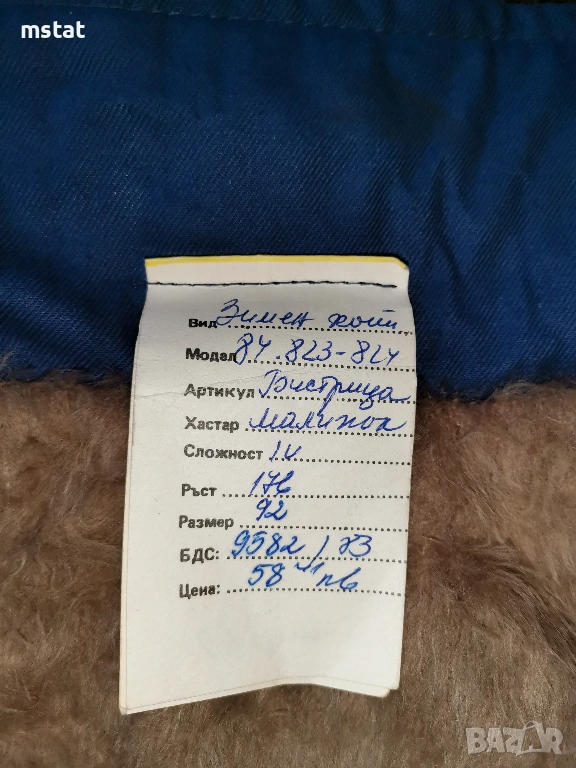 mstat
Вид Зимен
Модал 84.823-824
Артикул Бистрица
Хастар
Сложност IV
Ръст 176
Размер 92
БДС: 9582 / 83
Цена: 58
BAZAR